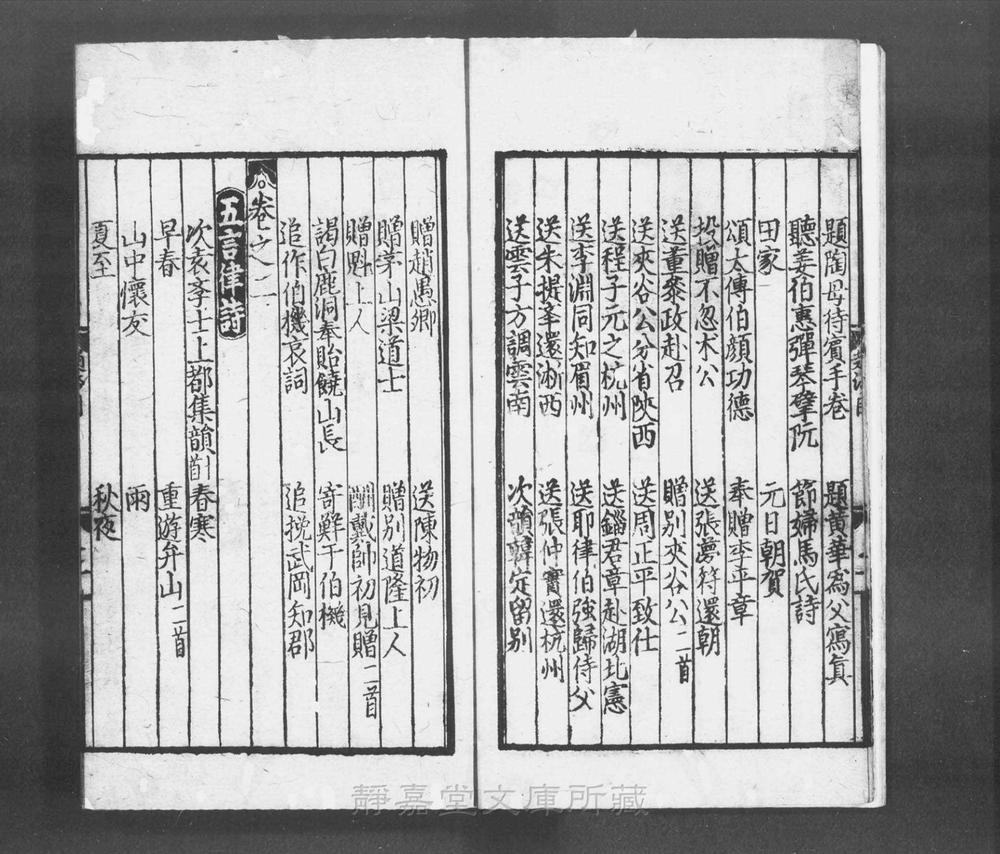 題陶母待賔手卷　題黄華為父寫真
聽姜伯惠彈琴擘阮　節婦馬氏詩
田家　元日朝賀
頌太傅伯顔功德　奉贈李平章
投贈不忽木公　送張夢符還朝
送董叅政赴召　贈别夾谷公二首
送夾谷公分省陜西　送周正平致仕
送程子元之杭州　送錙君章赴湖北憲
送李淵同知眉州　送耶律伯強歸侍父
送朱提㪯還淛西　送張仲實還杭州
送雲子方調雲南　次韻韓定留别
贈趙愚卿　送陳物初
贈茅山梁道士　贈别道隆上人
贈魁上人　酬戴帥初見贈二首
謁白鹿洞奉貽饒山長　寄鮮于伯機
追作伯機哀詞　追挽武岡知郡
卷之二
五言律詩
次袁學士上都集韻　春寒
早春　重遊弁山二首
山中懷友　雨
夏至　秋夜
靜嘉堂文庫所藏